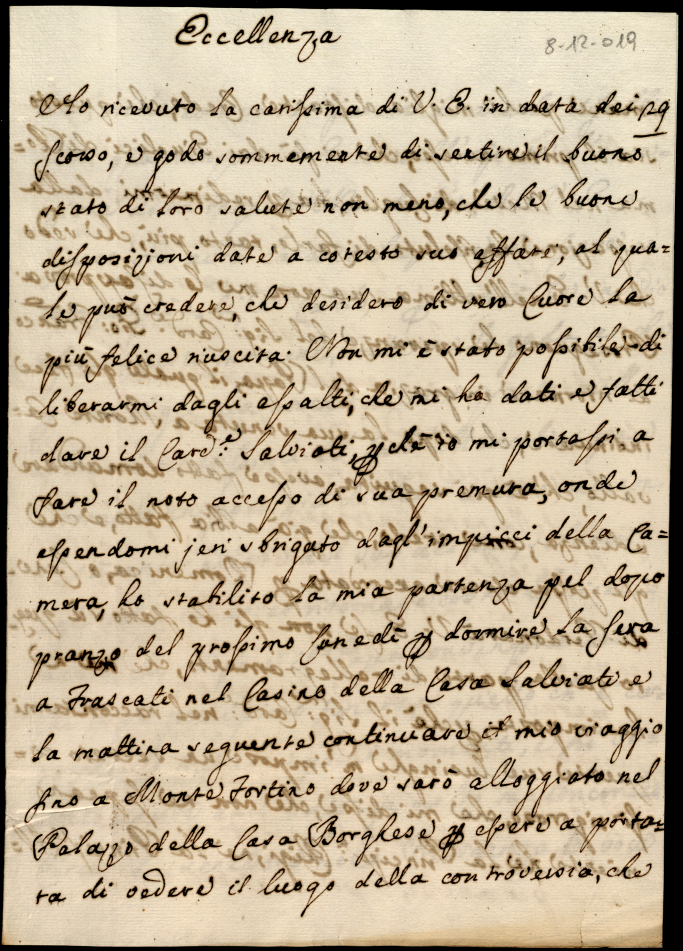 Eccellenza
8-12-019
Ho ricevuto la carissima di V. E. in data dei 29
scorso, e godo sommamente di sentire il buono
stato di loro salute non meno, che le buone
disposizioni date a cotesto suo affare, al qua=
le può credere, che desidero di vero Cuore la
più felice riuscita. Non mi è stato possibile di
liberarmi dagli assalti, che mi ha dati e fatti
dare il Card.e Salviati, p chè io mi portassi a
fare il noto accesso di sua premura, onde
essendomi jeri sbrigato dagl'impicci della Ca=
mera, ho stabilito la mia partenza pel dopo
pranzo del prossimo lunedì p dormire la sera
a Frascati nel Casino della Casa Salviati e
la mattina seguente continuare il mio viaggio
fino a Monte Fortino dove sarò alloggiato nel
Palazzo della Casa Borghese p essere a porta=
ta di vedere il luogo della controversia, che